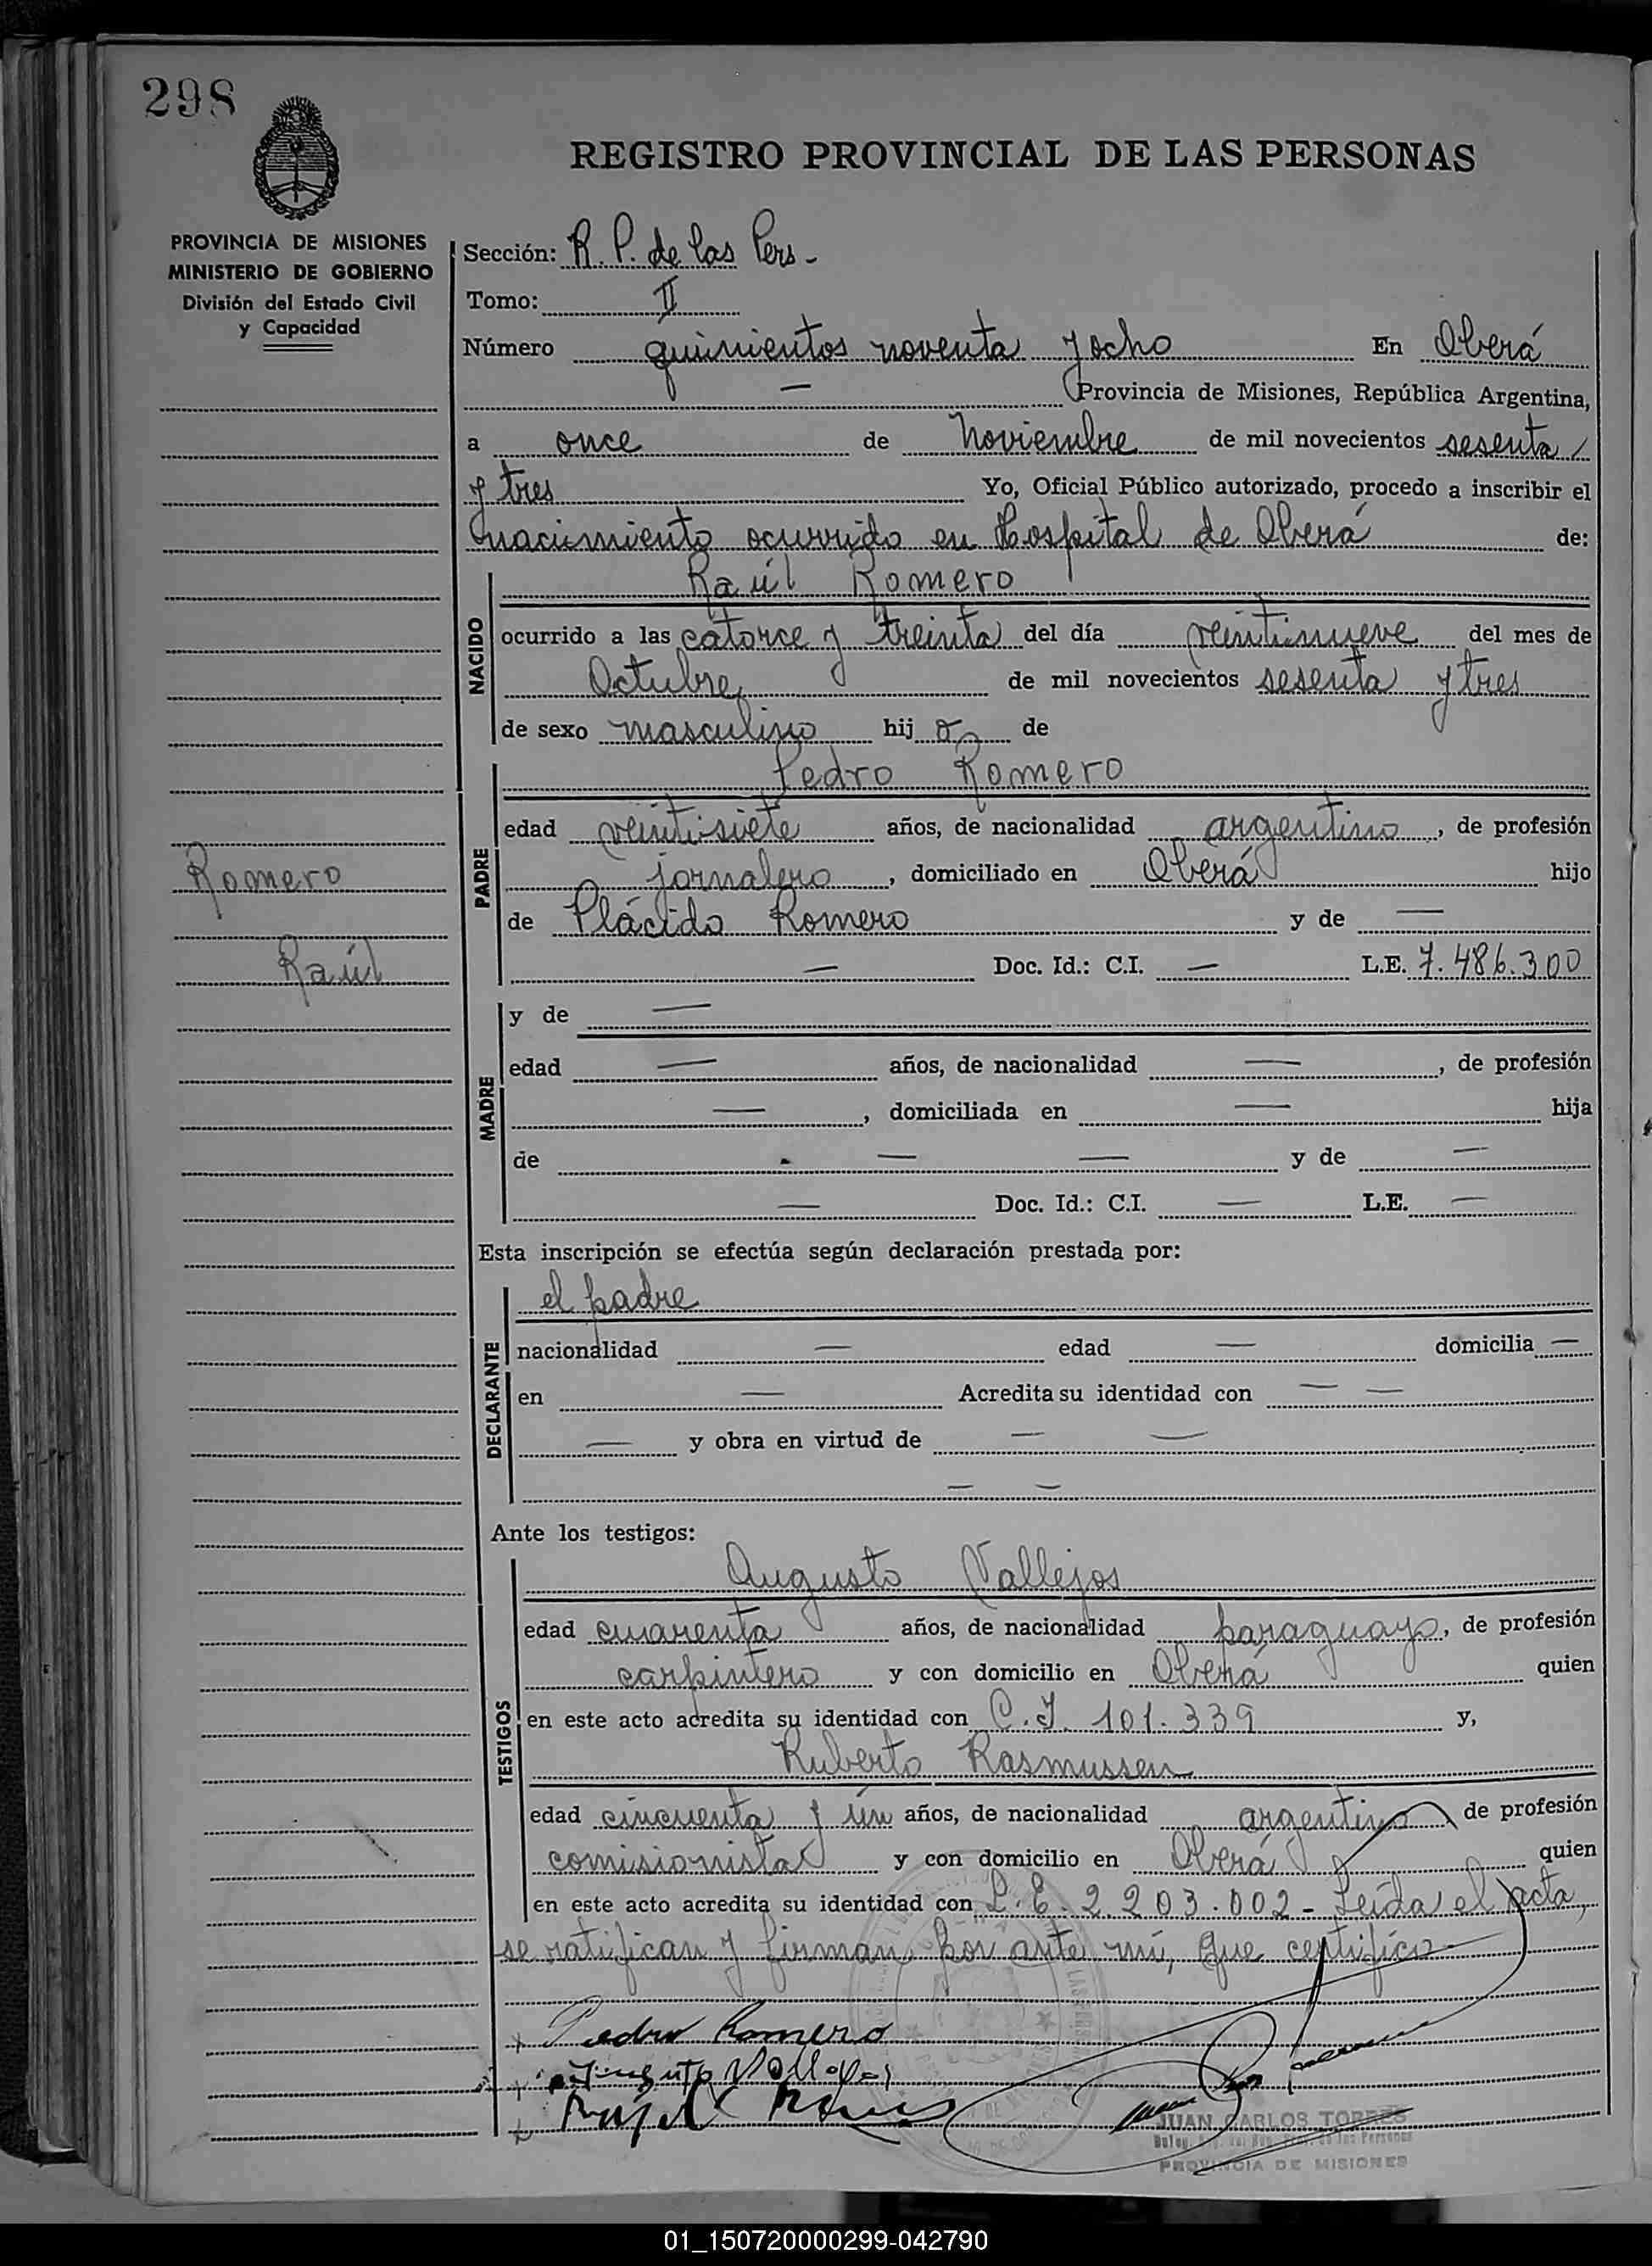 298
REGISTRO PROVINCIAL DE LAS PERSONAS
PROVINCIA DE MISIONES
MINISTERIO DE GOBIERNO
División del Estado Civil
y Capacidad
Sección: R. P. de las Pers -
Tomo: II
Número quinientos noventa y ocho En Oberá
— Provincia de Misiones, República Argentina,
a once de Noviembre de mil novecientos sesenta /
y tres Yo, Oficial Público autorizado, procedo a inscribir el
nacimiento ocurrido en Hospital de Oberá de:
NACIDO
Raúl Romero
ocurrido a las catorce y treinta del día veintinueve del mes de
Octubre de mil novecientos sesenta y tres
de sexo masculino hij o de
PADRE
Pedro Romero
edad veintisiete años, de nacionalidad argentino, de profesión
jornalero, domiciliado en Oberá hijo
de Plácido Romero y de —
— Doc. Id.: C.I. — L.E. 7.486.300
Romero
Raúl
MADRE
y de —
edad — años, de nacionalidad —, de profesión
—, domiciliada en — hija
de — — y de —
— Doc. Id.: C.I. — L.E. —
Esta inscripción se efectúa según declaración prestada por:
DECLARANTE
el padre
nacionalidad — edad — domicilia —
en — Acredita su identidad con — —
— y obra en virtud de — —
— —
Ante los testigos:
TESTIGOS
Augusto Vallejos
edad cuarenta años, de nacionalidad paraguayo, de profesión
carpintero y con domicilio en Oberá quien
en este acto acredita su identidad con C.I. 101.339 y,
Ruberto Rasmussen
edad cincuenta y un años, de nacionalidad argentino de profesión
comisionista y con domicilio en Oberá quien
en este acto acredita su identidad con L.E. 2.203.002 - Leída el acta,
se ratifican y firman por ante mí, que certifico -
Pedro Romero
JUAN CARLOS TORRES
PROVINCIA DE MISIONES
01_150720000299-042790